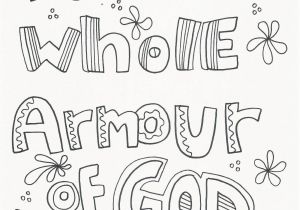 WHOLE
ARMOUR
OF GOD